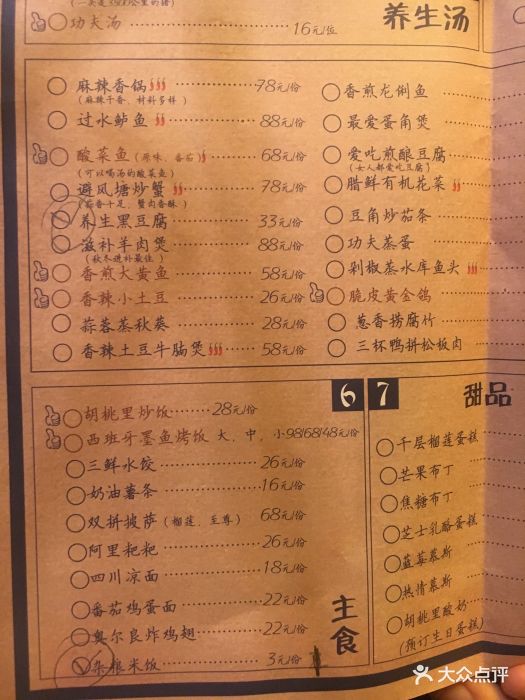 功夫汤 16元/位
养生汤
麻辣香锅 78元/份
(麻辣干香、材料多样)
过水鲈鱼 88元/份
酸菜鱼(原味、番茄) 68元/份
(可以喝汤的酸菜鱼)
避风塘炒蟹 78元/份
(蒜香十足、蟹肉香酥)
养生黑豆腐 33元/份
滋补羊肉煲 88元/份
(秋冬进补最佳)
香煎大黄鱼 58元/份
香辣小土豆 26元/份
蒜蓉蒸秋葵 28元/份
香辣土豆牛腩煲 58元/份
香煎龙俐鱼
最爱蛋角煲
爱吃煎酿豆腐
(女人都爱吃豆腐)
腊鲜有机花菜
豆角炒茄条
功夫蒸蛋
剁椒蒸水库鱼头
脆皮黄金鸽
葱香捞腐竹
三杯鸭拼松板肉
6
主食
胡桃里炒饭 28元/份
西班牙墨鱼烤饭 大、中、小98/68/48元/份
三鲜水饺 26元/份
奶油薯条 16元/份
双拼披萨(榴莲、至尊) 68元/份
阿里粑粑 26元/份
四川凉面 18元/份
番茄鸡蛋面 22元/份
奥尔良炸鸡翅 22元/份
杂粮米饭 3元/份
7
甜品
千层榴莲蛋糕
芒果布丁
焦糖布丁
芝士乳酪蛋糕
蓝莓慕斯
热情慕斯
胡桃里酸奶
(预订生日蛋糕)
大众点评